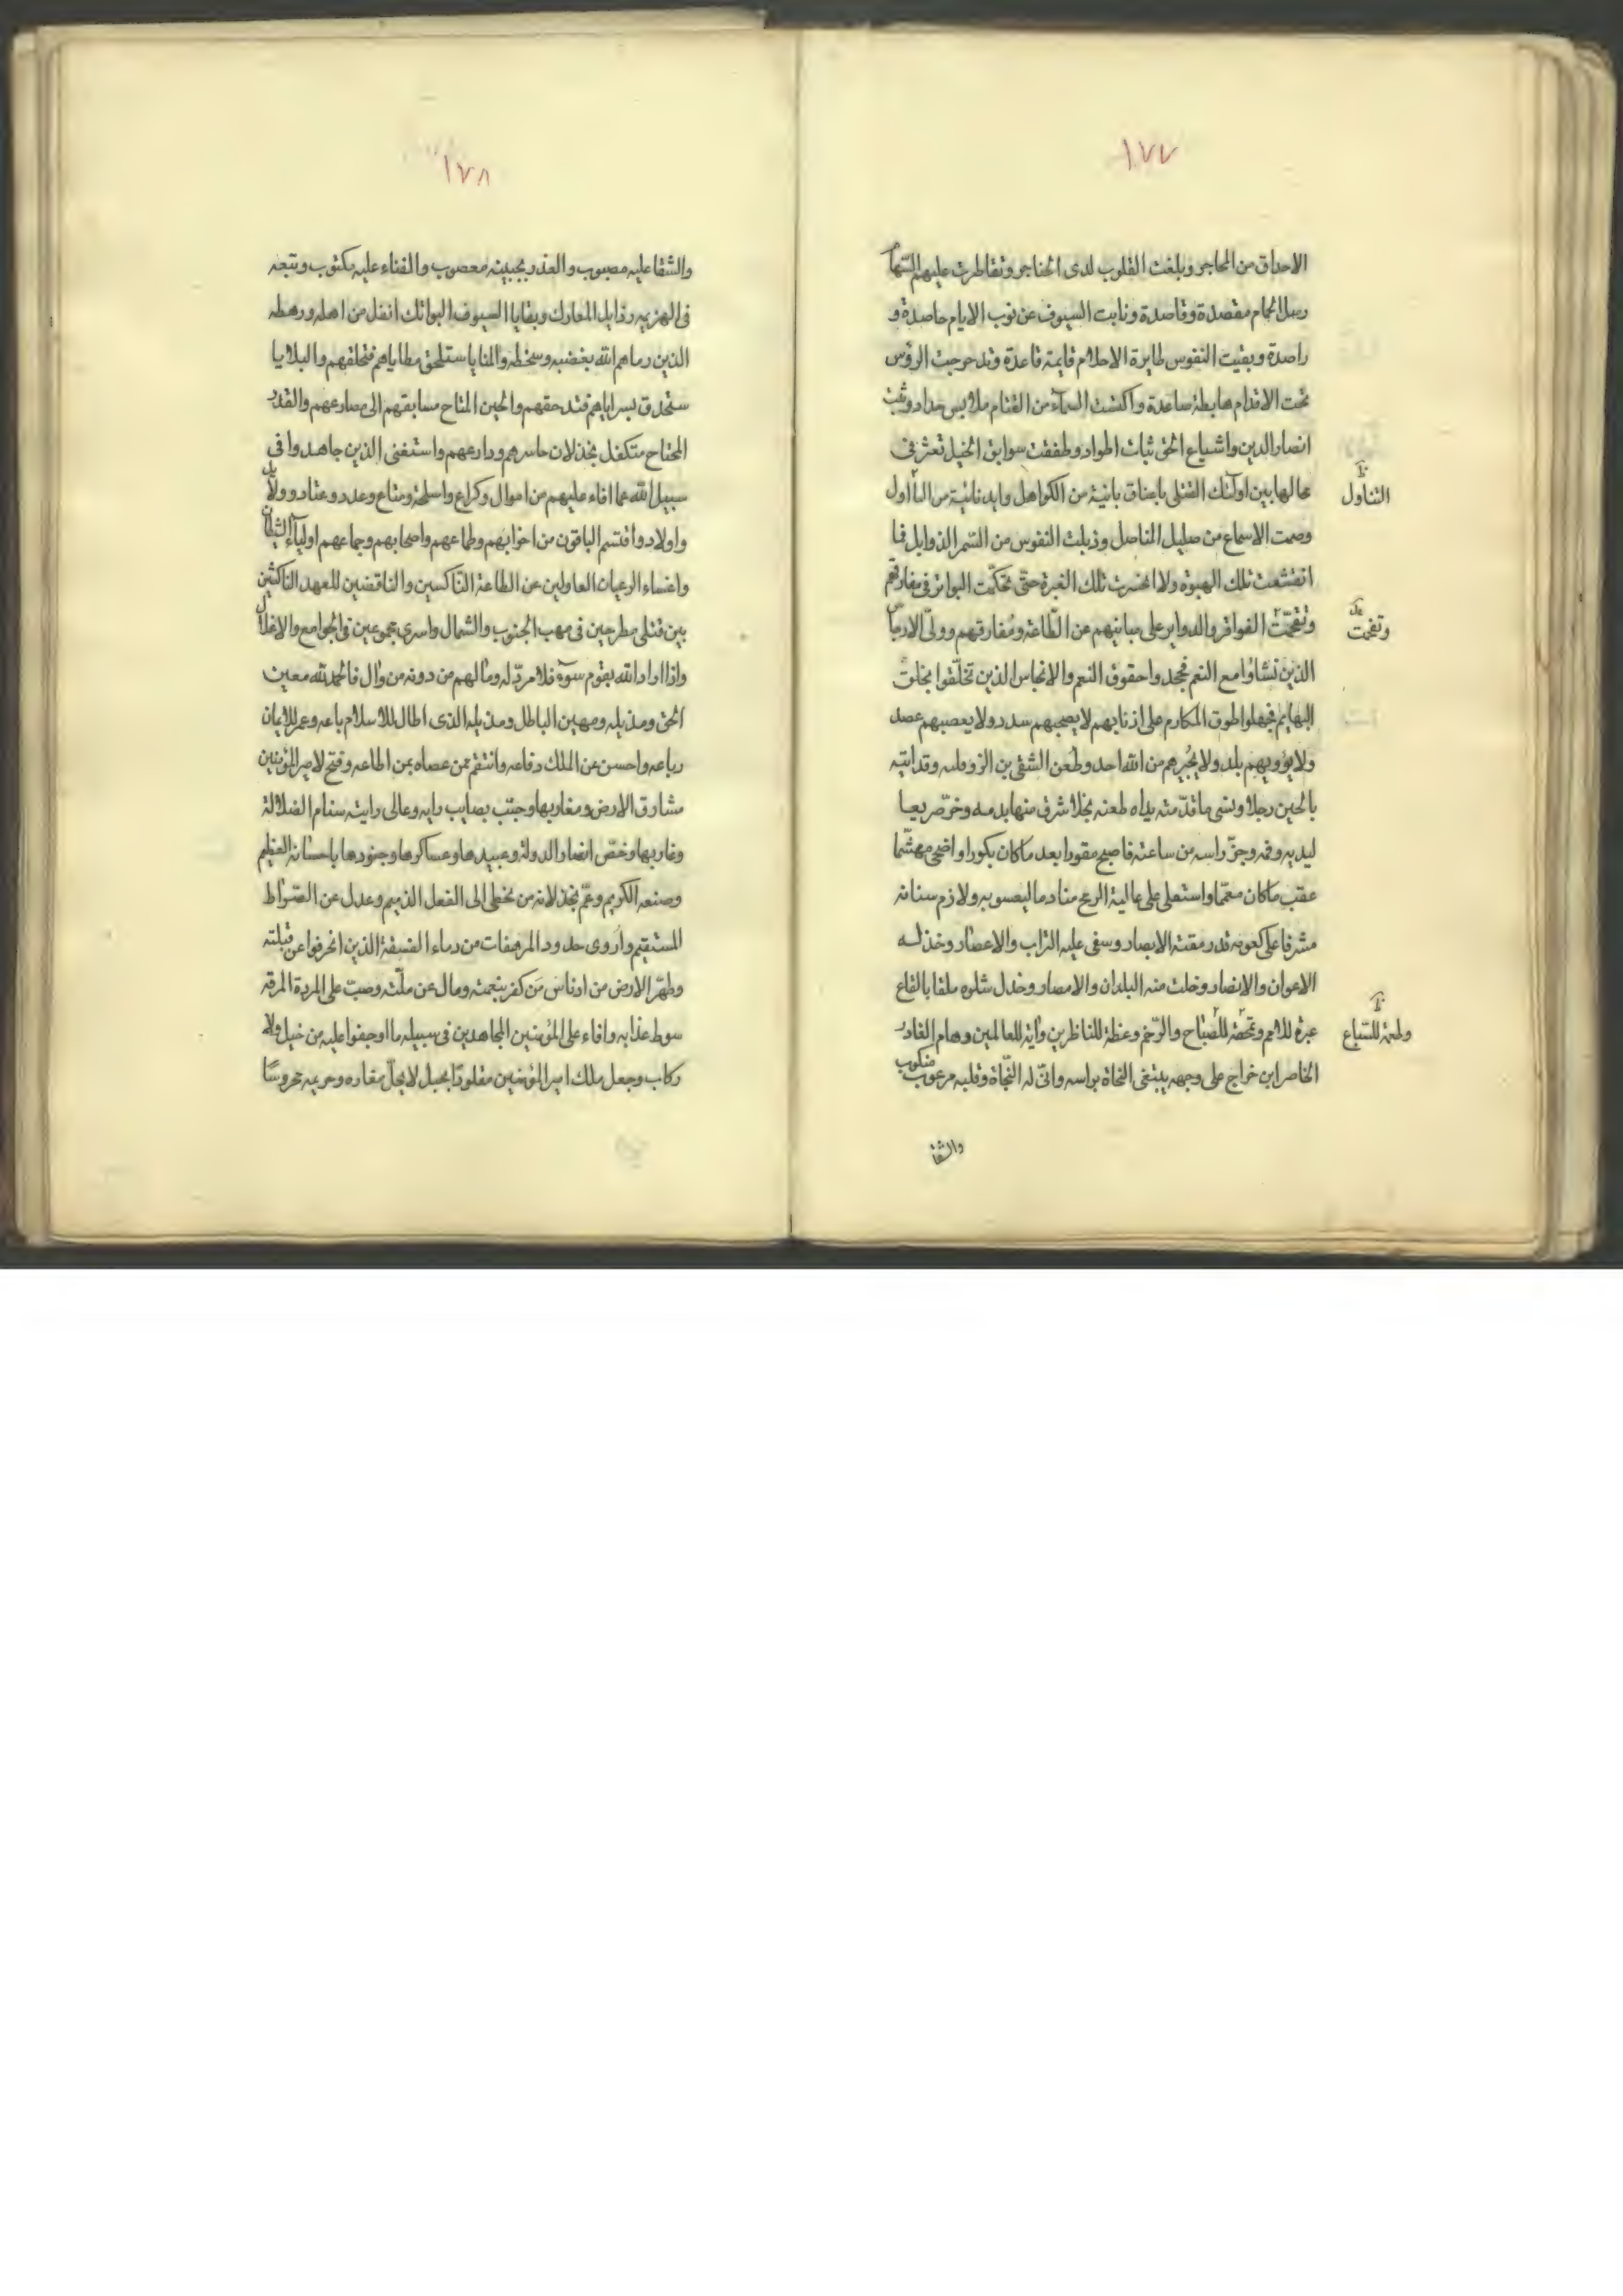 ١٧٧
الاحداق من المحاجر وبلغت القلوب لدى الحناجر وتقاطرت عليهم السهام
رسل الحمام مقصدة وقاصدة ونابت السيوف عن نوب الايام حاصدة و
راصدة وبقيت النفوس طايرة الاحلام قايمة قاعدة وتدحرجت الرؤس
تحت الاقدام هابطة صاعدة واكتست السماء من القتام ملابس حداد وثبت
انصار الدين واشياع الحق ثبات اطواد وطفقت سوابق الخيل تعثر فى
مجالها بين اولئك القتلى باعناق بائنة من الكواهل وايد نائية من التأاول
التناول
وصمت الاسماع من صليل المناصل وذبلت النفوس من السمر الذوابل فما
انقشعت تلك الهبوة ولا انحسرت تلك الغبرة حتى تحكمت البواتر فى مفارقهم
وتقحمت الفواقر والدواير على مباينهم عن الطاعة ومفارقهم وولى الارجاس
وتقحمت
الذين نشاؤا مع النعم فجحدوا حقوق النعم والانجاس الذين تخلقوا بخلق
البهايم فجهلوا طوق المكارم على اذنابهم لا يصحبهم سدد ولا يعصبهم عضد
ولا يؤويهم بلد ولا يجيرهم من الله احد وطعن الشقى بن الزوملية وقد اتيه
بالحين رجلا ونسى ما قدمته يداه طعنه نجلا شرق منها بدمه وخر صريعا
ليديه وفمه وحز راسه من ساعته فاصبح مقودا بعد ما كان بكورا واضحى مهشما
عقب ما كان معمما واستعلى على عالية الرمح منادما ليعسوبه ولازم سنانه
مشرفا على كعوبه قد رمقته الابصار وسفى عليه التراب والاعصار وخذله
الاعوان والانصار وخلت منه البلدان والامصار وخدل شلوه ملقا بالقاع
عبرة للامم وتحفة للضباح والرخم وعظة للناظرين وآية للعالمين وهام الغادر
وطعمة للسباع
الخاسر ابن خراج على وجهه يبتغى النجاة براسه وانى له النجاة وقلبه مرعوب منكوب
والشقا
١٧٨
والشقا عليه مصبوب والعذر بجبينه معصوب والفناء عليه مكتوب وتبعه
فى الهزيمه رذايل المعارك وبقايا السيوف البواتك انفل من اهله ورهطه
الذين رماهم الله بغضبه وسخطه والمنايا ستلحق مطاياهم فتحلقهم والبلايا
ستحدق بسراياهم فتدحقهم والحين المتاح مسابقهم الى مصارعهم والقدر
المجتاح متكفل بخذلان حاسرهم ودارعهم واستغنى الذين جاهدوا فى
سبيل الله مما افاء عليهم من اموال وكراع واسلحة ومتاع وعدد وعتاد وولايد
واولاد واقتسم الباقون من اخوانهم وطماعهم واصحابهم وجماعهم اولياء الشيطان
واغساء الرعيان العاولين عن الطاعة الناكسين والناقضين للعهد الناكثين
بين قتلى مطرحين فى مهب الجنوب والشمال واسرى مجموعين فى الجوامع والاغلال
واذا اراد الله بقوم سوءً فلا مرد له وما لهم من دونه من وال فالحمد لله معين
الحق ومديله ومهين الباطل ومذيله الذى اطال للاسلام باعه وعمر للايمان
رباعه واحسن عن الملك دفاعه وانتقم ممن عصاه بمن اطاعه وفتح لامير المؤمنين
مشارق الارض ومغاربها وجبّ بصايب رايه وعالى رايته سنام الضلالة
وغاربها وخصّ انصار الدولة وعبيدها وعساكرها وجنودها باحسانه العظيم
وصنعه الكريم وعمّ بخذلانه من تخطى الى الفعل الذميم وعدل عن الصراط
المستقيم واروى حدود المرهفات من دماء الفسقة الذين انحرفوا عن قبلته
وطهر الارض من ادناس من كفر بنعمته ومال عن ملّته وصبّ على المردة المرقه
سوط عذابه وافاء على المؤمنين المجاهدين فى سبيله ما اوجفوا عليه من خيل ولا
ركاب وجعل ملك امير المؤمنين مقلودًا بحبل لا يحلّ مغاره وحريمه محروسًا